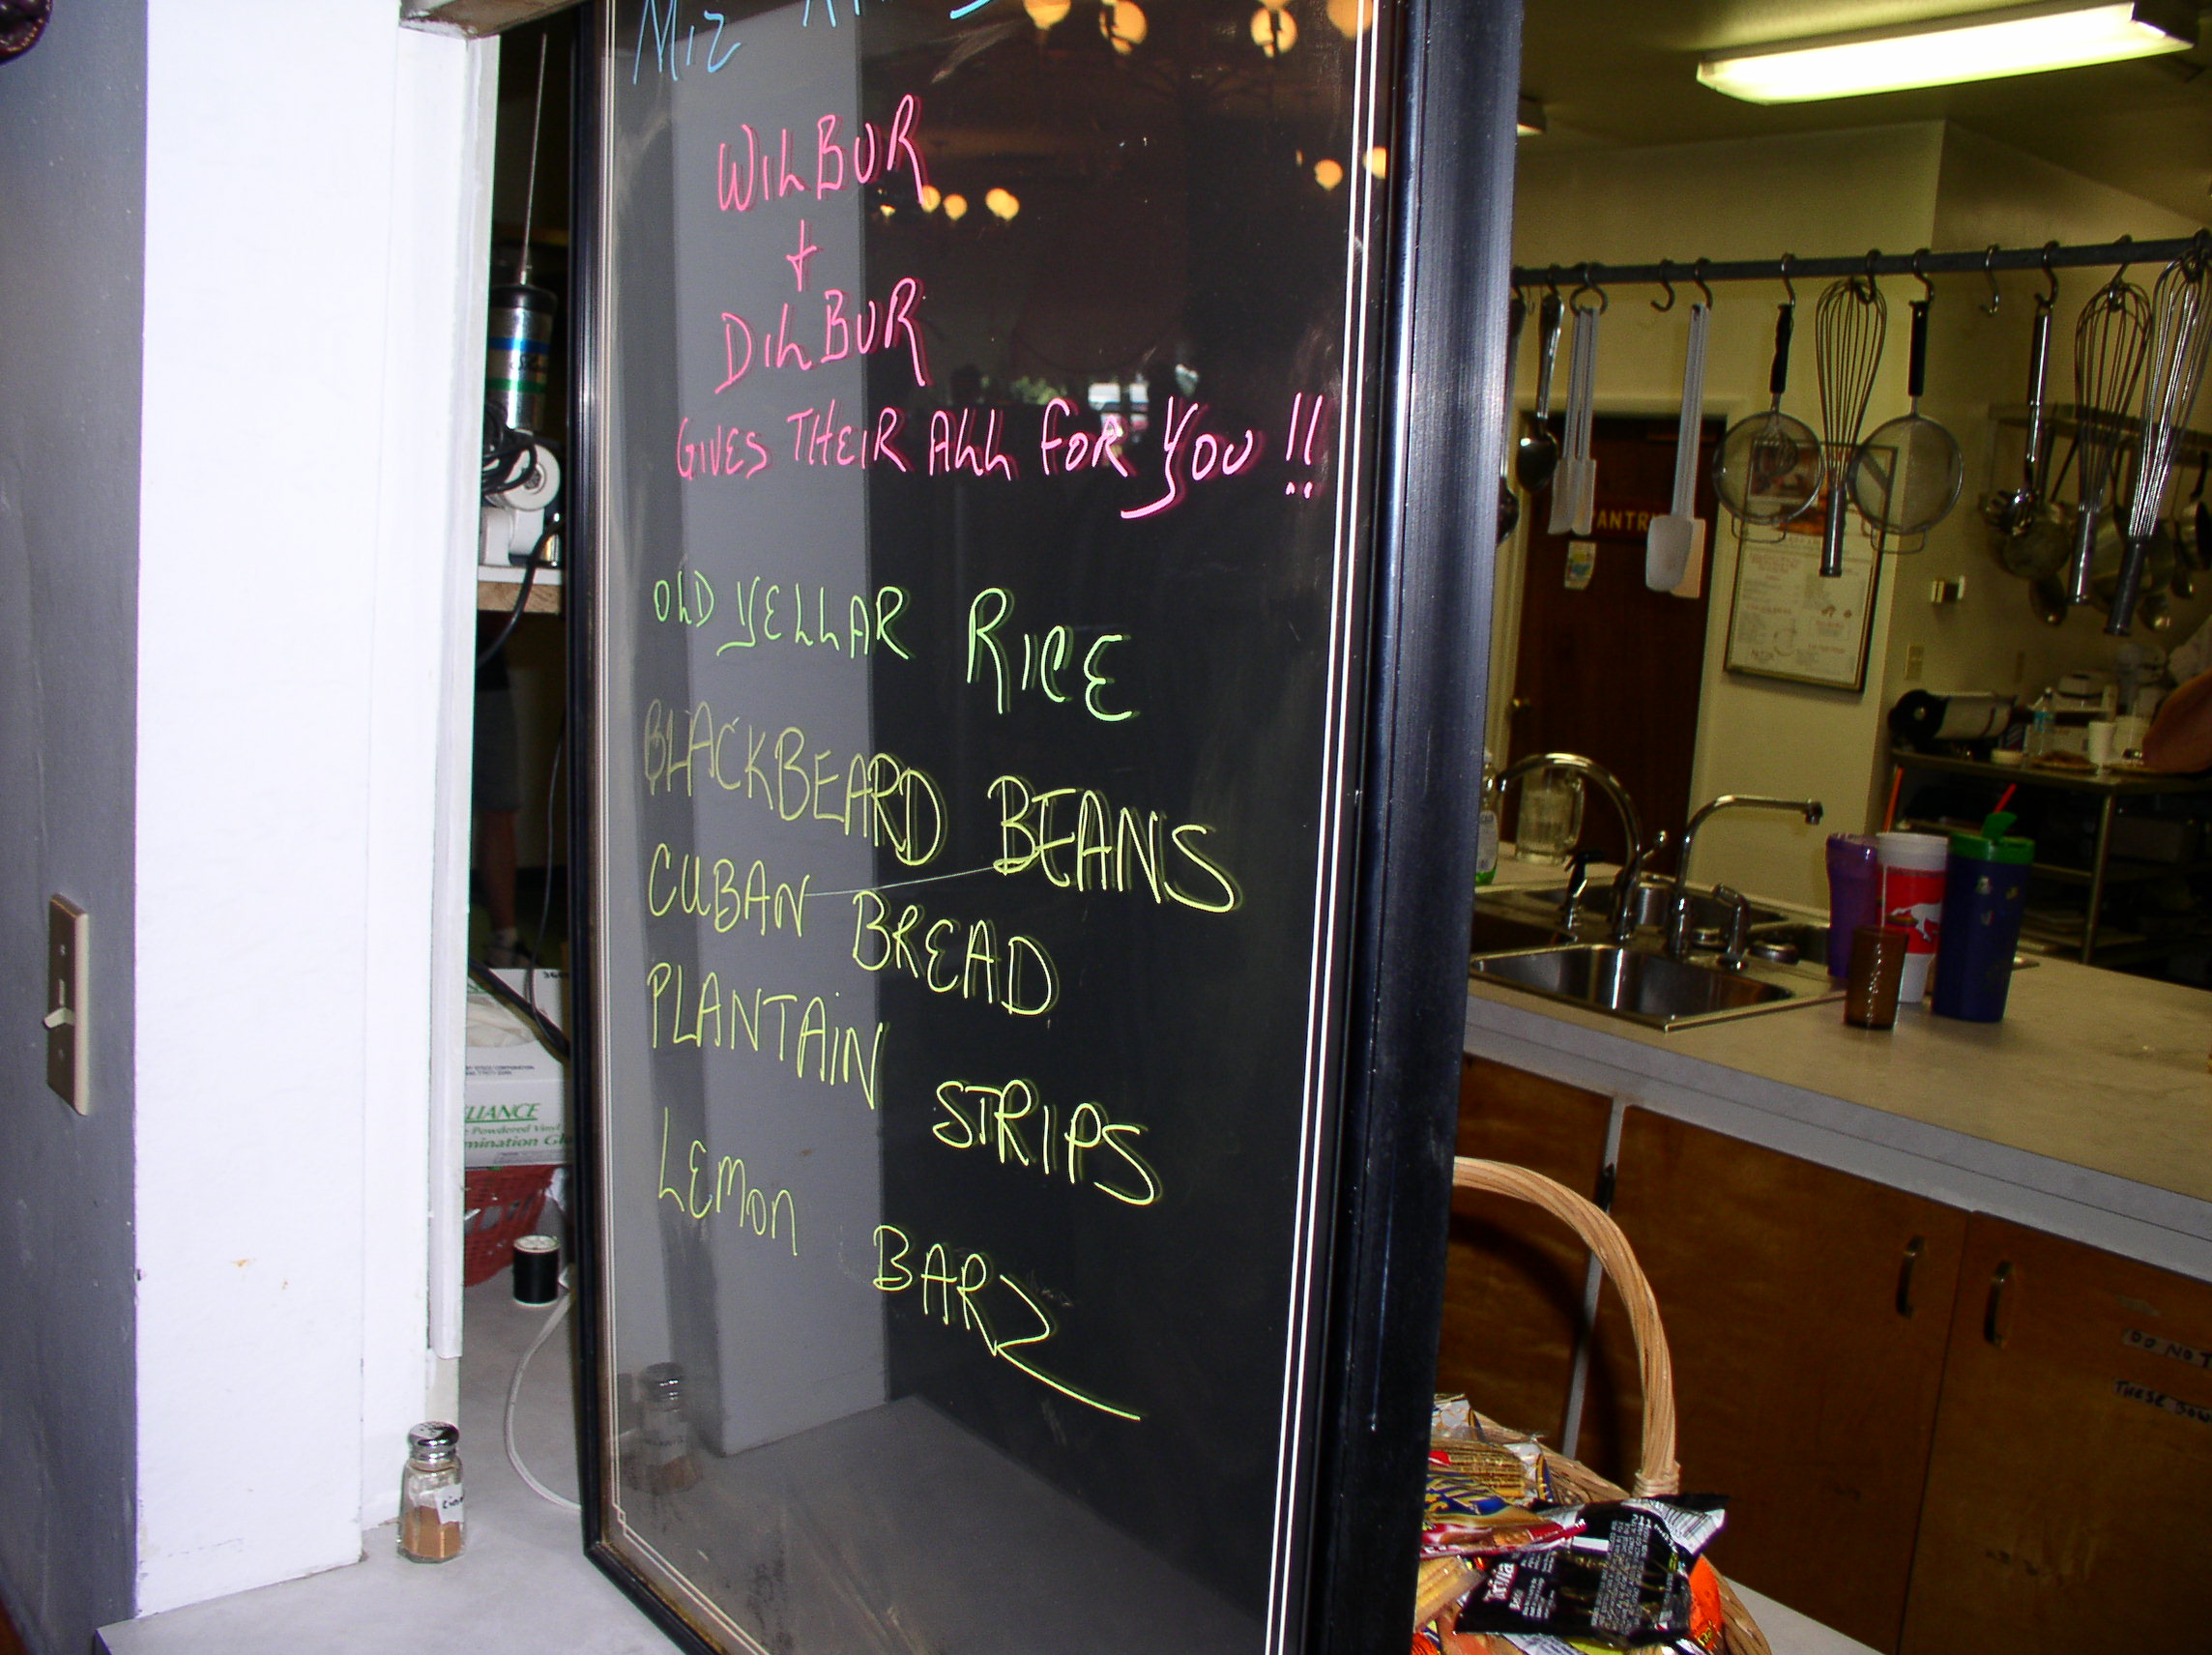 Miz
WILBUR
+
DILBUR
GIVES THEIR ALL FOR YOU !!
OLD YELLAR RICE
BLACKBEARD BEANS
CUBAN BREAD
PLANTAIN STRIPS
LEMON BARZ
LIANCE
Powdered Vinyl
mination Gl
ANTR
DO NOT
THESE BOW